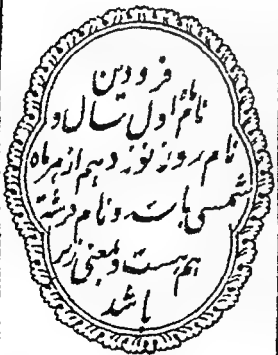 فرودین
نام اول سال و
نام روز نوزدهم از هر ماه
شمسی باشد و نام فرشته
هم هست و بمعنی زیر
باشد